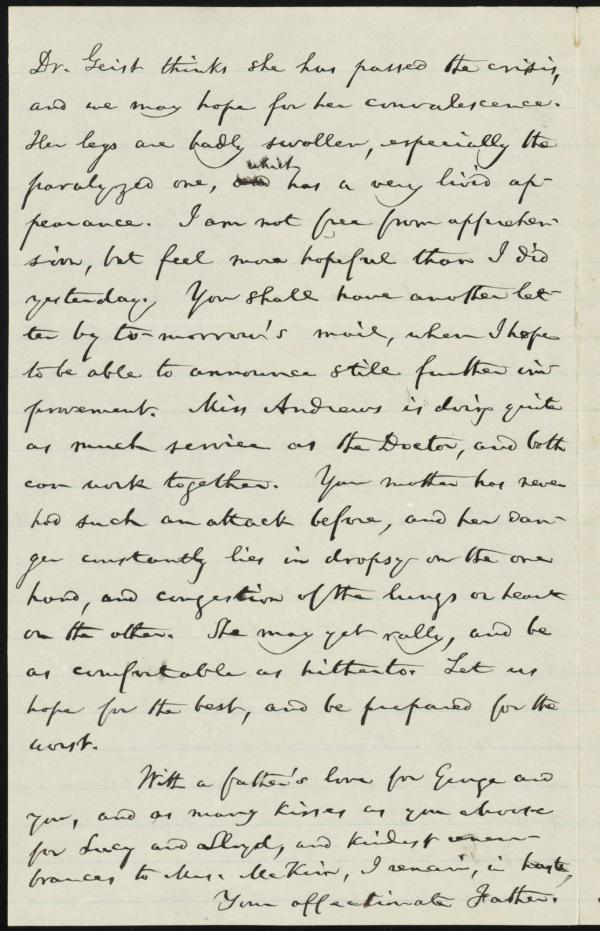 Dr. Geist thinks she has passed the crisis,
and we may hope for her convalescence.
Her legs are badly swollen, especially the
paralyzed one, which has a very livid ap-
pearance. I am not free from apprehen-
sion, but feel more hopeful than I did
yesterday. You shall have another let-
ter by to-morrow's mail, when I hope
to be able to announce still further im-
provement. Miss Andrews is doing quite
as much service as the Doctor, and both
can work together. Your mother has never
had such an attack before, and her dan-
ger constantly lies in dropsy on the one
hand, and congestion of the lungs or heart
on the other. She may yet rally, and be
as comfortable as hitherto. Let us
hope for the best, and be prepared for the
worst.
With a father's love for George and
you, and as many kisses as you choose
for Lucy and Lloyd, and kindest remem-
brances to Mrs. McKim, I remain, in haste,
Your affectionate Father.